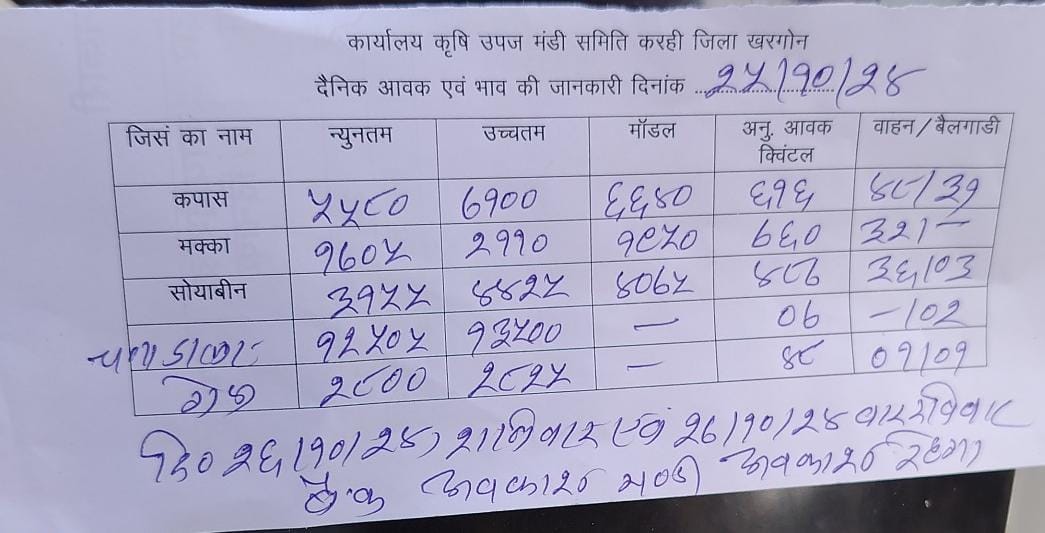 कार्यालय कृषि उपज मंडी समिति करही जिला खरगोन
दैनिक आवक एवं भाव की जानकारी दिनांक २५/१०/२४
जिसं का नाम न्युनतम उच्चतम मॉडल अनु. आवक क्विंटल वाहन/बैलगाडी
कपास ५५८० ७१०० ६६४० ६१६ ४८/३१
मक्का १७०५ २११० १८५० ७६० ३२/-
सोयाबीन ३१५५ ४४२५ ४०७५ ३६/०३
चना डालर १२५०५ १३५०० — ०१ -/०२
गेहु २८०० २८२५ — ४८ ०१/०१
दि० २६/१०/२४, शनिवार एवं २७/१०/२४ वार रविवार
बैंक अवकाश मण्डी अवकाश रहेगा